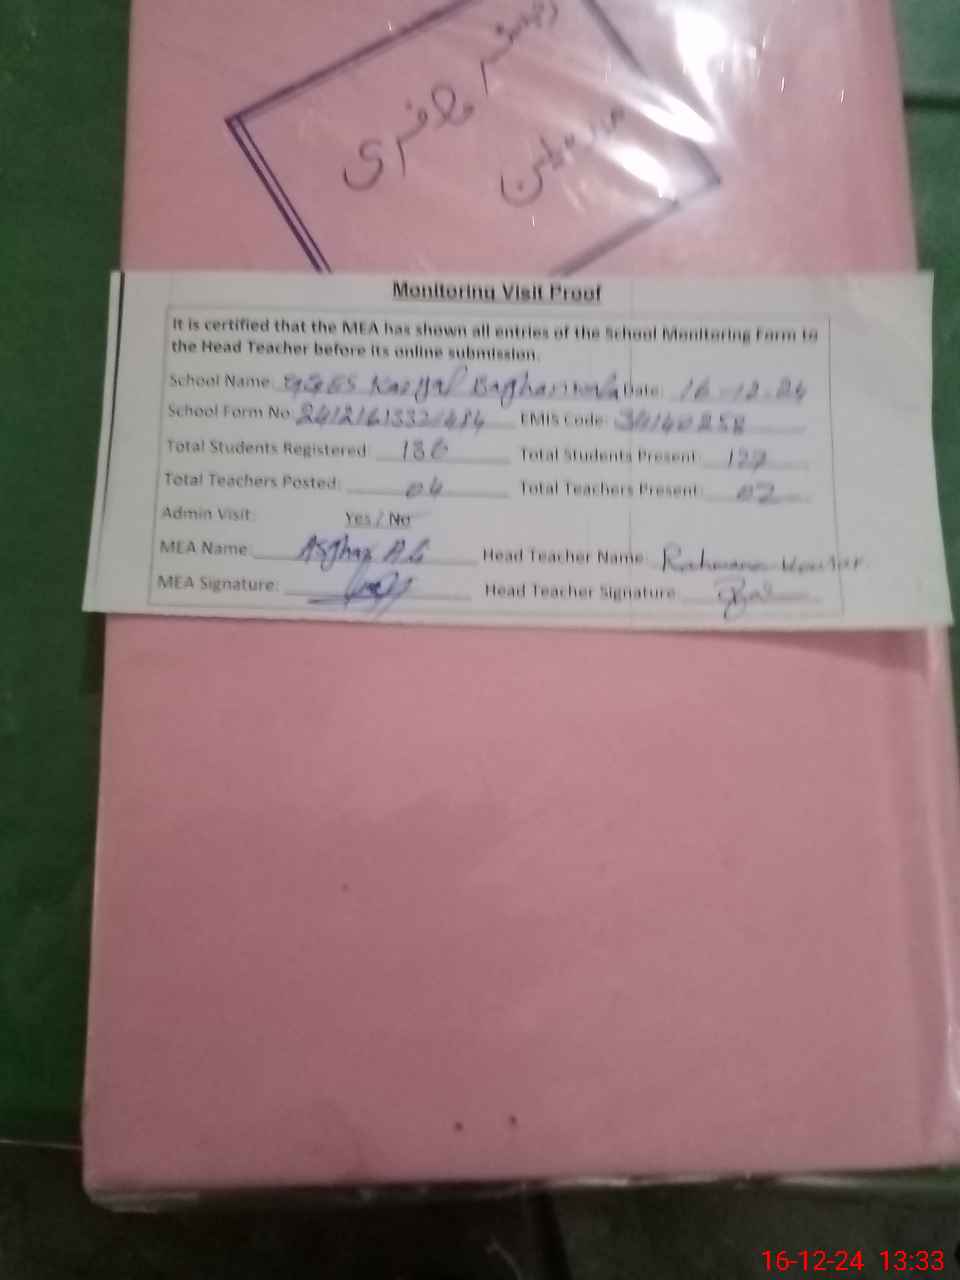 رجسٹر
حاضری
مدرسین
Monitoring Visit Proof
It is certified that the MEA has shown all entries of the School Monitoring Form to
the Head Teacher before its online submission.
School Name: GGES Karyal Bagharianwala Date: 16-12-24
School Form No: EMIS Code: 34140258
Total Students Registered: 136 Total Students Present: 127
Total Teachers Posted: 04 Total Teachers Present: 02
Admin Visit: Yes / No
MEA Name: Asghar Ali Head Teacher Name: Rehmana Kousar
MEA Signature: Head Teacher Signature:
16-12-24 13:33